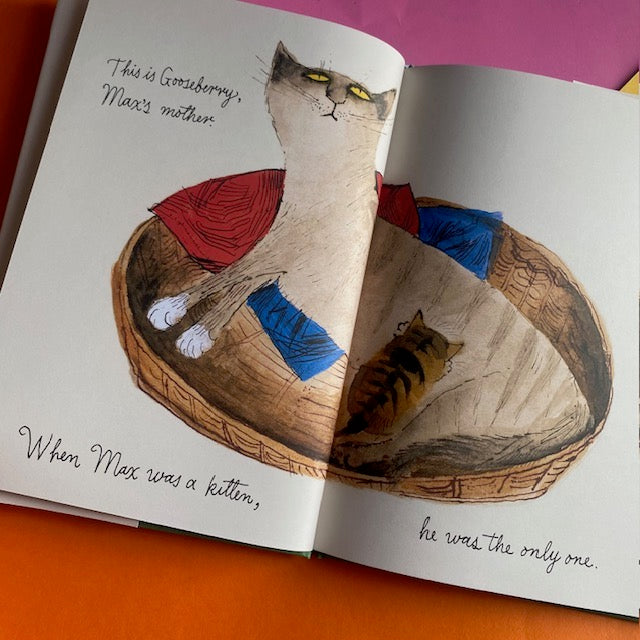 This is Gooseberry,
Max's mother.
When Max was a kitten,
he was the only one.